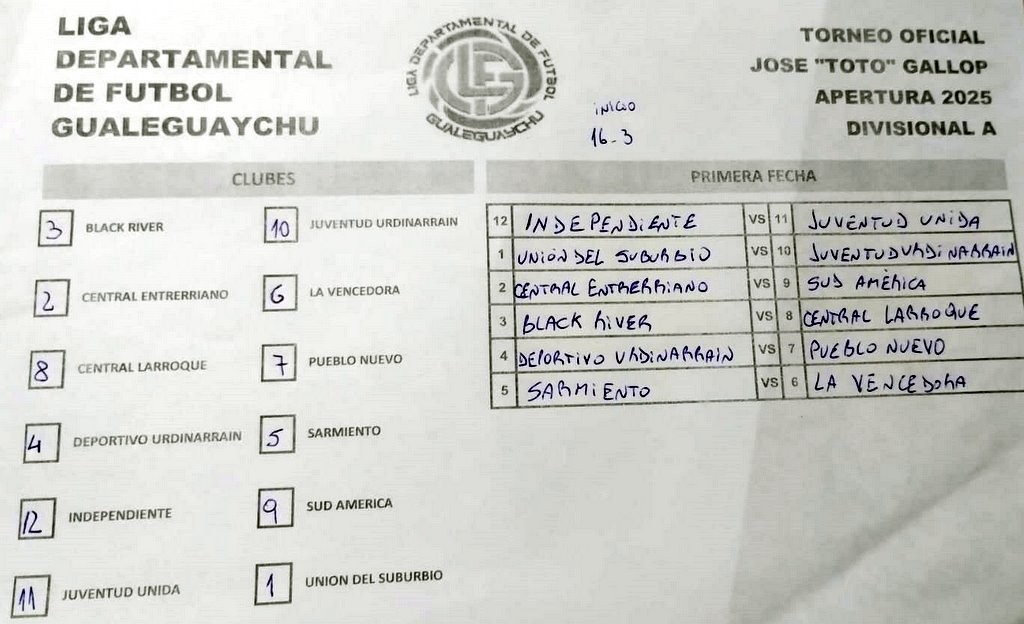 LIGA
DEPARTAMENTAL
DE FUTBOL
GUALEGUAYCHU
LIGA DEPARTAMENTAL DE FUTBOL
GUALEGUAYCHU
INICIO
16-3
TORNEO OFICIAL
JOSE "TOTO" GALLOP
APERTURA 2025
DIVISIONAL A
CLUBES
3 BLACK RIVER 10 JUVENTUD URDINARRAIN
2 CENTRAL ENTRERRIANO 6 LA VENCEDORA
8 CENTRAL LARROQUE 7 PUEBLO NUEVO
4 DEPORTIVO URDINARRAIN 5 SARMIENTO
12 INDEPENDIENTE 9 SUD AMERICA
11 JUVENTUD UNIDA 1 UNION DEL SUBURBIO
PRIMERA FECHA
12 INDEPENDIENTE VS 11 JUVENTUD UNIDA
1 UNIÓN DEL SUBURBIO VS 10 JUVENTUD URDINARRAIN
2 CENTRAL ENTRERRIANO VS 9 SUD AMÉRICA
3 BLACK RIVER VS 8 CENTRAL LARROQUE
4 DEPORTIVO URDINARRAIN VS 7 PUEBLO NUEVO
5 SARMIENTO VS 6 LA VENCEDORA